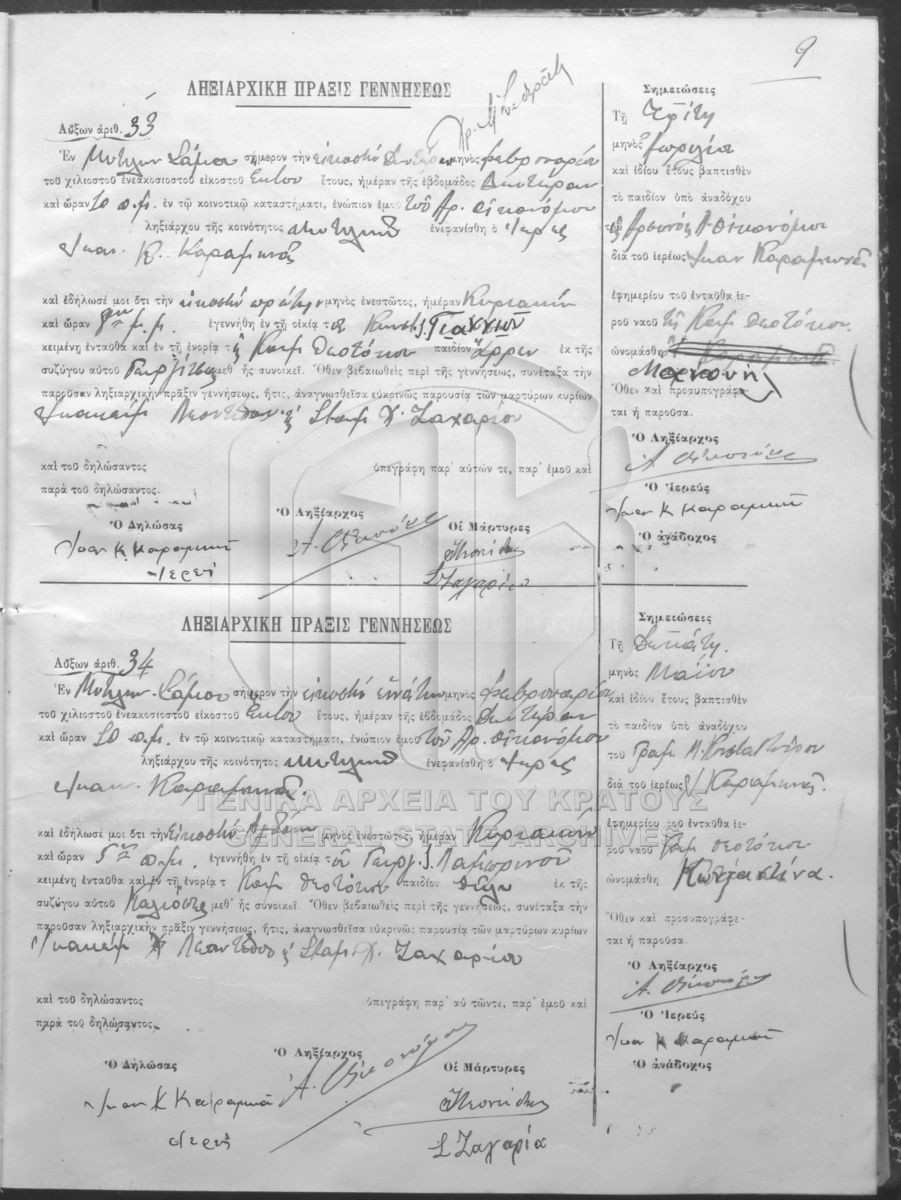 9
ΛΗΞΙΑΡΧΙΚΗ ΠΡΑΞΙΣ ΓΕΝΝΗΣΕΩΣ
Αὔξων ἀριθ. 33
Ἐν Μυτιλην. Σάμου σήμερον τὴν εἰκοστὴν Δευτέραν μηνὸς Φεβρουαρίου
τοῦ χιλιοστοῦ ἐνεακοσιοστοῦ εἰκοστοῦ Ἕκτου ἔτους, ἡμέραν τῆς ἑβδομάδος Δευτέραν
καὶ ὥραν 10 π.μ. ἐν τῷ κοινοτικῷ καταστήματι, ἐνώπιον ἐμοῦ τοῦ Ἀρ. Οἰκονόμου
ληξιάρχου τῆς κοινότητος ἐνεφανίσθη ὁ Ἱερεὺς
Ἰωαν. Κ. Καραμηνᾶς
καὶ ἐδήλωσέ μοι ὅτι τὴν εἰκοστὴν πρώτην μηνὸς ἐνεστῶτος, ἡμέραν Κυριακὴν
καὶ ὥραν μ.μ. ἐγεννήθη ἐν τῇ οἰκίᾳ τοῦ Κωνστ. Ι. Γιαννιοῦ
κειμένῃ ἐνταῦθα καὶ ἐν τῇ ἐνορίᾳ τῆς Κοιμ Θεοτόκου παιδίον ἄρρεν ἐκ τῆς
συζύγου αὐτοῦ μεθ' ἧς συνοικεῖ. Ὅθεν βεβαιωθεὶς περὶ τῆς γεννήσεως, συνέταξα τὴν
παροῦσαν ληξιαρχικὴν πρᾶξιν γεννήσεως, ἥτις, ἀναγνωσθεῖσα εὐκρινῶς παρουσίᾳ τῶν μαρτύρων κυρίων
Ἰωακεὶμ Σταμ Χ. Ζαχαρίου
καὶ τοῦ δηλώσαντος ὑπεγράφη παρ' αὐτῶν τε, παρ' ἐμοῦ καὶ
παρὰ τοῦ δηλώσαντος.
Ὁ Δηλώσας Ὁ Ληξίαρχος Οἱ Μάρτυρες
Ἰωαν Κ Καραμηνᾶ Ἀ. Οἰκονόμου
Ἱερεὺ Σ Ζαχαρίου
Σημειώσεις
Τῇ Τρίτῃ
μηνὸς Ἀπριλίου
καὶ ἰδίου ἔτους βαπτισθὲν
τὸ παιδίον ὑπὸ ἀναδόχου
Ἀ. Οἰκονόμου
διὰ τοῦ ἱερέως Ἰωαν Καραμηνᾶ
ἐφημερίου τοῦ ἐνταῦθα ἱε-
ροῦ ναοῦ τῆς Κοιμ Θεοτόκου.
ὠνομάσθη
Ὅθεν καὶ προσυπογράφε-
ται ἡ παροῦσα.
Ὁ Ληξίαρχος
Ἀ. Οἰκονόμου
Ὁ Ἱερεύς
Ἰωαν Κ Καραμηνᾶ
Ὁ ἀνάδοχος
ΛΗΞΙΑΡΧΙΚΗ ΠΡΑΞΙΣ ΓΕΝΝΗΣΕΩΣ
Αὔξων ἀριθ. 34
Ἐν Μυτιλην. Σάμου σήμερον τὴν εἰκοστὴν ἐνάτην μηνὸς Φεβρουαρίου
τοῦ χιλιοστοῦ ἐνεακοσιοστοῦ εἰκοστοῦ Ἕκτου ἔτους, ἡμέραν τῆς ἑβδομάδος Δευτέραν
καὶ ὥραν 10 π.μ. ἐν τῷ κοινοτικῷ καταστήματι, ἐνώπιον ἐμοῦ τοῦ Ἀρ. Οἰκονόμου
ληξιάρχου τῆς κοινότητος ἐνεφανίσθη ὁ Ἱερεὺς
Ἰωαν. Καραμηνᾶς.
ΓΕΝΙΚΑ ΑΡΧΕΙΑ ΤΟΥ ΚΡΑΤΟΥΣ
GENERAL STATE ARCHIVES
καὶ ἐδήλωσέ μοι ὅτι τὴν εἰκοστὴν ὀγδόην μηνὸς ἐνεστῶτος, ἡμέραν Κυριακὴν
καὶ ὥραν π.μ. ἐγεννήθη ἐν τῇ οἰκίᾳ τοῦ Γεωργ. Ι. Λαμπρινοῦ
κειμένῃ ἐνταῦθα καὶ ἐν τῇ ἐνορίᾳ τ Κοιμ Θεοτόκου παιδίον θῆλυ ἐκ τῆς
συζύγου αὐτοῦ Καλιόπης μεθ' ἧς συνοικεῖ. Ὅθεν βεβαιωθεὶς περὶ τῆς γεννήσεως, συνέταξα τὴν
παροῦσαν ληξιαρχικὴν πρᾶξιν γεννήσεως, ἥτις, ἀναγνωσθεῖσα εὐκρινῶς παρουσίᾳ τῶν μαρτύρων κυρίων
Ἰωακεὶμ Σταμ. Χ. Ζαχαρίου
καὶ τοῦ δηλώσαντος ὑπεγράφη παρ' αὐ τῶντε, παρ' ἐμοῦ καὶ
παρὰ τοῦ δηλώσαντος.
Ὁ Δηλώσας Ὁ Ληξίαρχος Οἱ Μάρτυρες
Ἰωαν Κ Καραμηνᾶ Ἀ. Οἰκονόμου
Ἱερεὺ Σ Ζαχαρία
Σημειώσεις
Τῇ Δεκάτῃ
μηνὸς Μαΐου
καὶ ἰδίου ἔτους βαπτισθὲν
τὸ παιδίον ὑπὸ ἀναδόχου
τοῦ
διὰ τοῦ ἱερέως Ι Καραμηνᾶ
ἐφημερίου τοῦ ἐνταῦθα ἱε-
ροῦ ναοῦ Κοιμ Θεοτόκου
ὠνομάσθη Κωνσταντίνα.
Ὅθεν καὶ προσυπογράφε-
ται ἡ παροῦσα.
Ὁ Ληξίαρχος
Ἀ. Οἰκονόμου
Ὁ Ἱερεύς
Ἰωαν Κ Καραμηνᾶ
Ὁ ἀνάδοχος